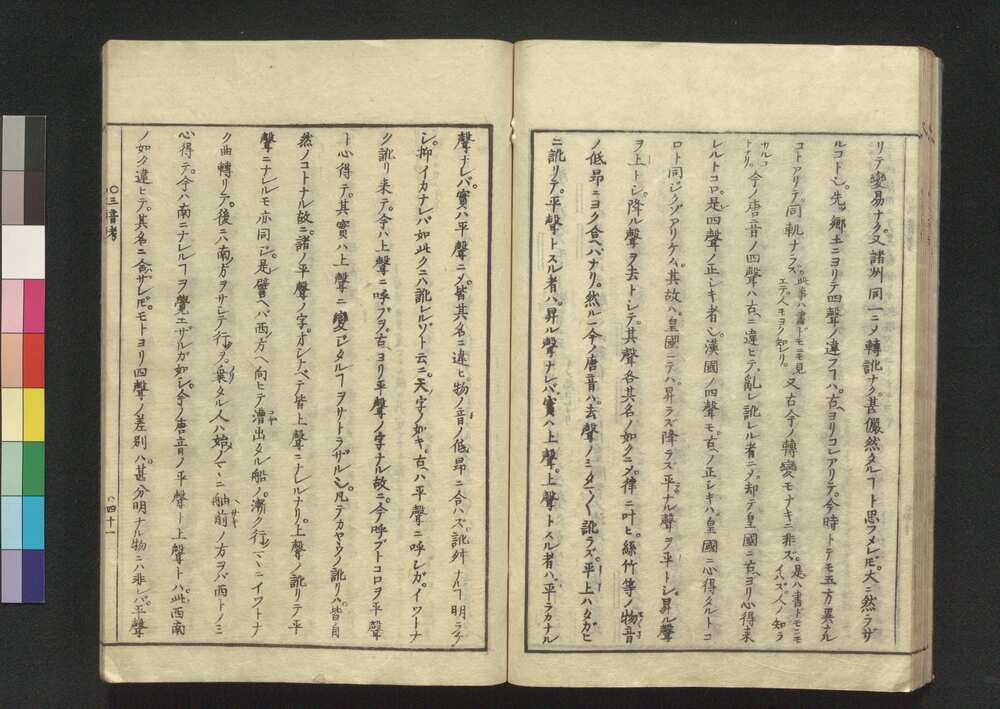 リテ變易ナク。又諸州同一ニ〆轉訛ナク。甚儼然タルヿト思フメレ𪜈。大ニ然ラザ
ルコト也。先ヅ鄕土ニヨリテ四聲ノ違フヿハ。古ヘヨリコレアリテ。今時トテモ五方異ナル
コトアリテ。同軌ナラズ。此事ハ書𪜈ニモ見エテ。人モヨク知レリ。又古今ノ轉變モナキニ非ズ。是ハ書𪜈ニモイハズ。人ノ知ラ
ザルコトナリ。今ノ唐音ノ四聲ハ古ニ違ヒテ。亂レ訛レル者ニ〆。却テ皇國ニ古ヘヨリ心得來
レルトコロ。是四聲ノ正シキ者也。漢國ノ四聲モ。古ヘノ正シキハ。皇國ニ心得タルトコ
ロト同ジクゾアリケム。其故ハ。皇國ニテハ。昇ラズ降ラズ平ナル聲ヲ平トシ。昇ル聲
ヲ上トシ。降ル聲ヲ去トシテ。其聲各其名ノ如クニ〆。律ニ叶ヒ。絲竹等ノ物音
ノ低昂ニヨク合ヘバナリ。然ルニ今ノ唐音ハ。去聲ノミタヾシク訛ラズ。平上ハタガヒ
ニ訛リテ。平聲トスル者ハ。昇ル聲ナレバ。實ハ上聲。上聲トスル者ハ。平ラカナル
聲ナレバ。實ハ平聲ニ〆。皆其名ニ違ヒ物ノ音ノ低昂ニ合ハズ。訛舛ナルヿ明ラケ
シ。抑イカナレバ如此クニハ訛レルゾト云ニ。天字ノ如キ。古ヘハ平聲ニ呼レガ。イツトナ
ク訛リ來テ。今ハ上聲ニ呼ブヲ。古ヘヨリ平聲ノ字ナル故ニ。今呼ブトコロヲ平聲
ト心得テ。其實ハ上聲ニ變ジタルヿヲサトラザル也。凡テカヤウノ訛リハ。皆自
然ノコトナル故ニ。諸ノ平聲ノ字。オシナベテ皆上聲ニナレルナリ。上聲ノ訛リテ平
聲ニナレルモ亦同ジ。是譬ヘバ西ノ方ヘ向ヒテ漕出タル船ノ。漸ク行マヽニイツトナ
ク曲轉リテ。後ニハ南ノ方ヲサシテ行ヲ。乘タル人ハ始ノマヽニ舳前ノ方ヲバ西トノミ
心得テ。今ハ南ニナレルヿヲ覺エザルガ如シ。今ノ唐音ノ平聲ト上聲トハ。此西南
ノ如ク違ヒテ。其名ニ合ザレ𪜈。モトヨリ四聲ノ差別ハ。甚分明ナル物ニハ非レバ。平聲
〇三音考
〇四十一